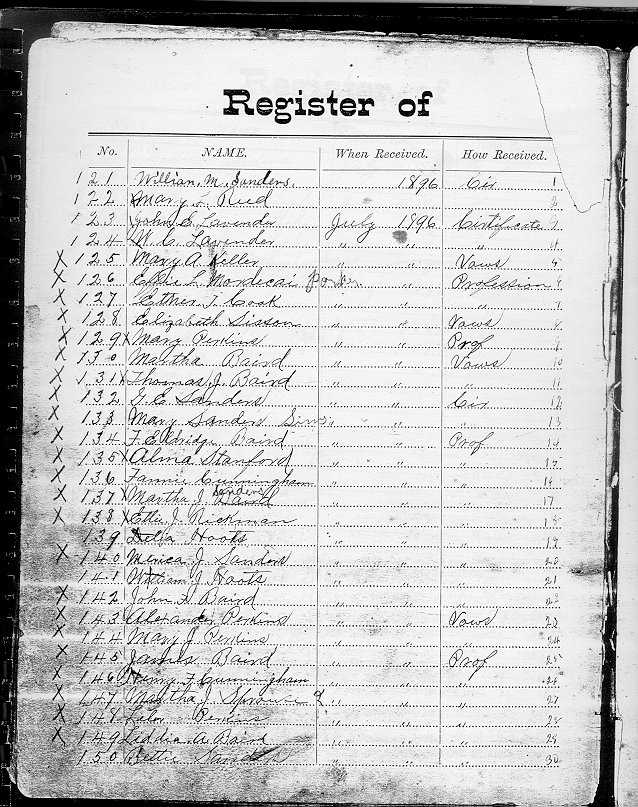 Register of
No. NAME. When Received. How Received.
121 William M. Sanders 1896 Cir 1
122 Mary L. Reed 2
123 John E. Lavender July 1896 Certificate 3
124 M. C. Lavender " " " 4
X 125 Mary A. Keller " " Vows 5
X 126 L. Mordecai " " Profession 6
X 127 Esther T. Cook " " " 7
X 128 Elizabeth Sisson " " Vows 8
X 129 X Mary Perkins " " Prof 9
X 130 Martha Baird " " Vows 10
X 131 X Thomas J. Baird " " " 11
X 132 G. E. Sanders " " Cir 12
X 133 Mary Sanders Sims " " " 13
X 134 F. Eldridge Baird " " Prof 14
X 135 X Alma Stanford " " " 15
X 136 Fannie Cunningham " " " 16
X 137 X Martha J. Sanders " " " 17
X 138 X J. Rickman " " " 18
139 Della Hooks " " " 19
X 140 J. Sanders " " " 20
141 William J. Hooks " " " 21
X 142 John F. Baird " " " 22
X 143 Alexander Perkins " " Vows 23
X 144 Mary J. Perkins " " " 24
X 145 James Baird " " Prof 25
X 146 Henry F. Cunningham " " " 26
X 147 Martha J. Sprouse " " " 27
X 148 Perkins " " " 28
X 149 Liddia A. Baird " " " 29
150 Bettie Sanders " " " 30